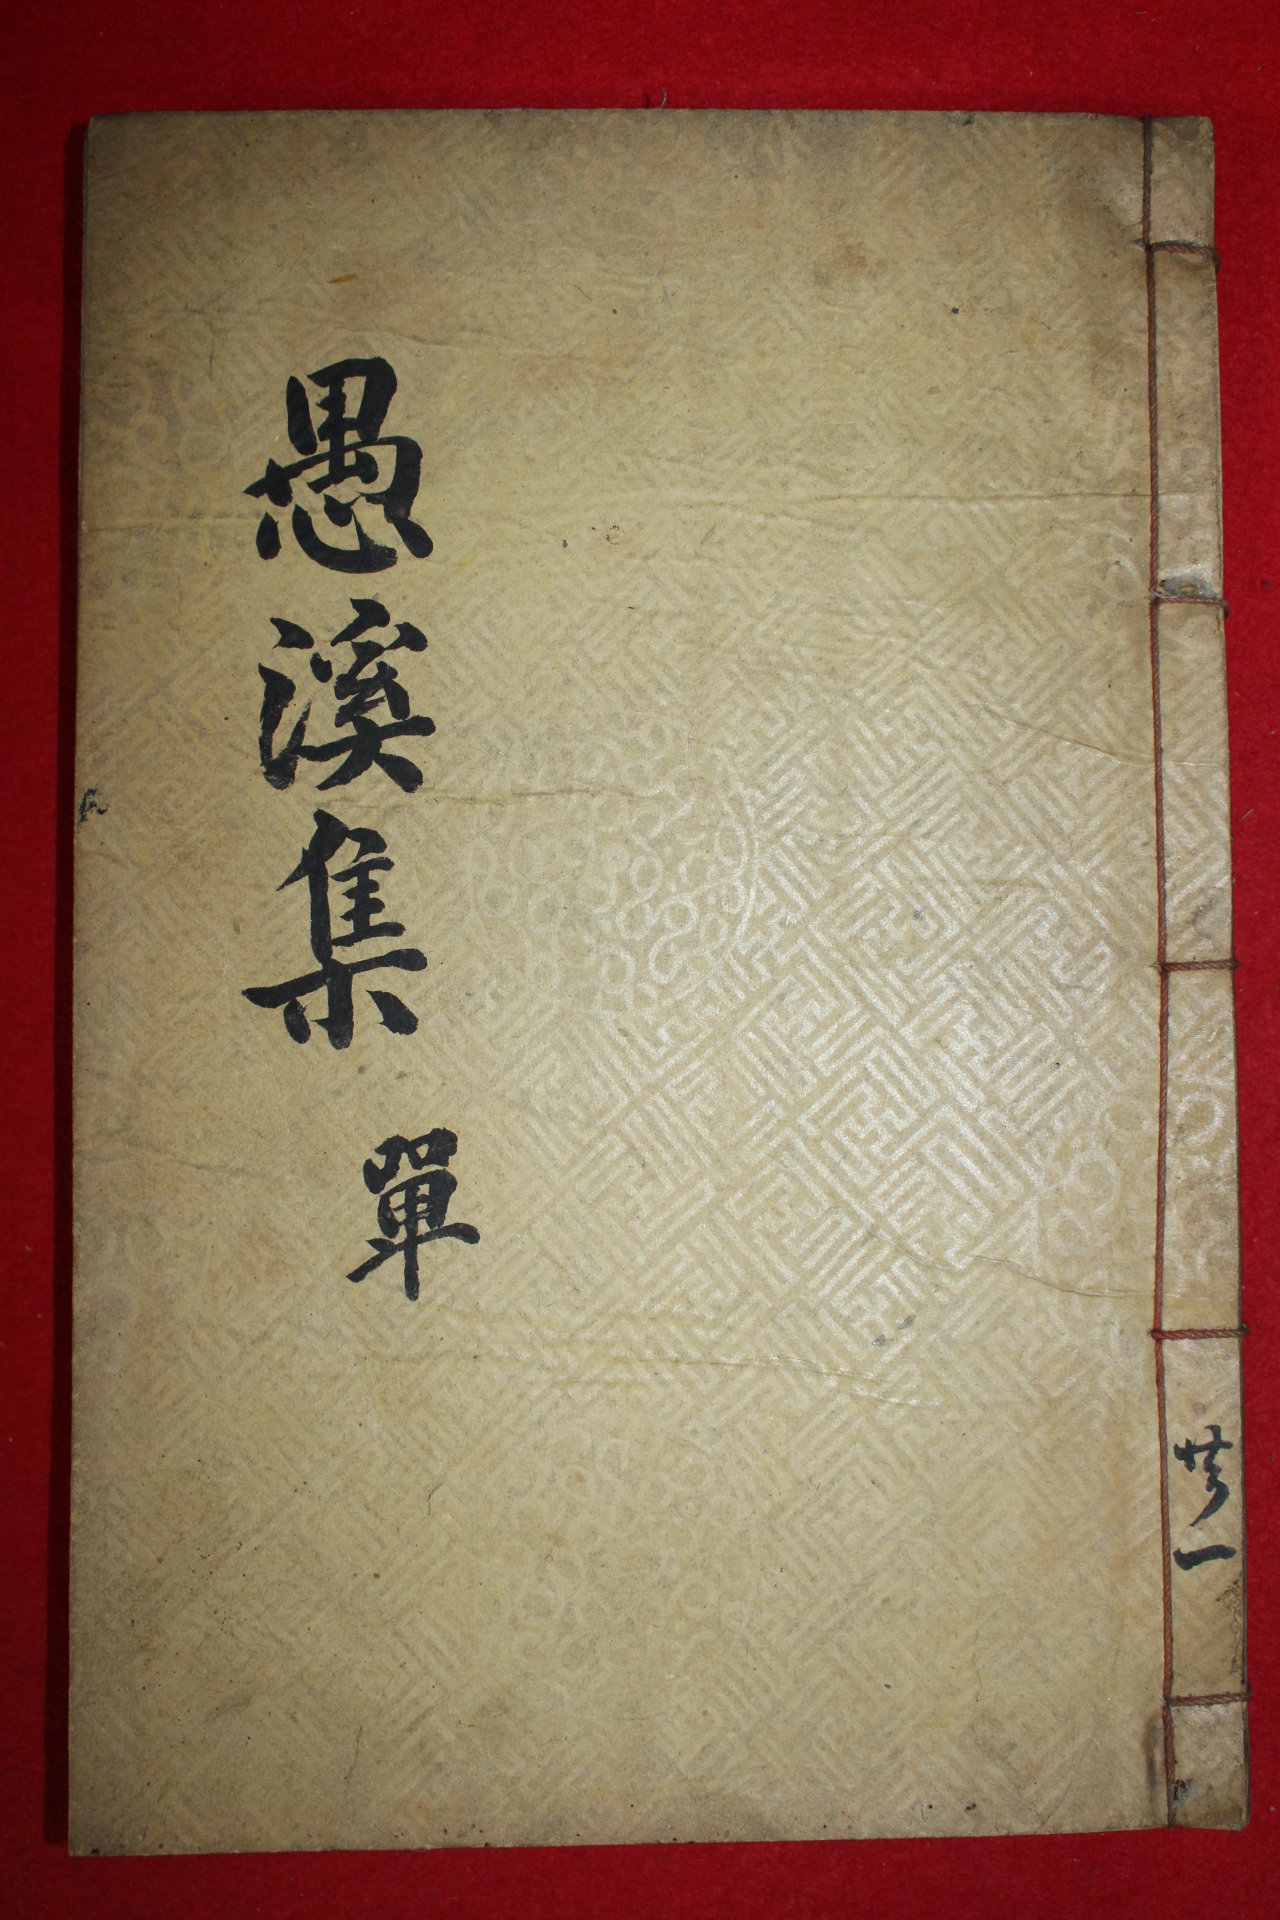 愚溪集
單
共一